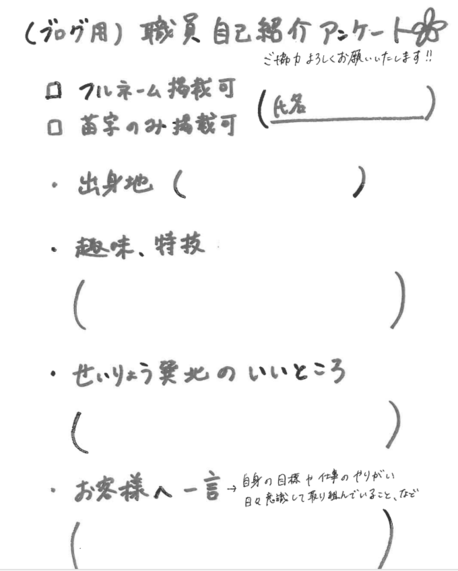 (ブログ用) 職員 自己紹介 アンケート
ご協力よろしくお願いいたします!!
□ フルネーム掲載可
□ 苗字のみ掲載可
(氏名 )
・出身地 ( )
・趣味、特技
( )
・せいりょう巽北のいいところ
( )
・お客様へ一言 → 自身の目標や仕事のやりがい
日々意識して取り組んでいること、など
( )